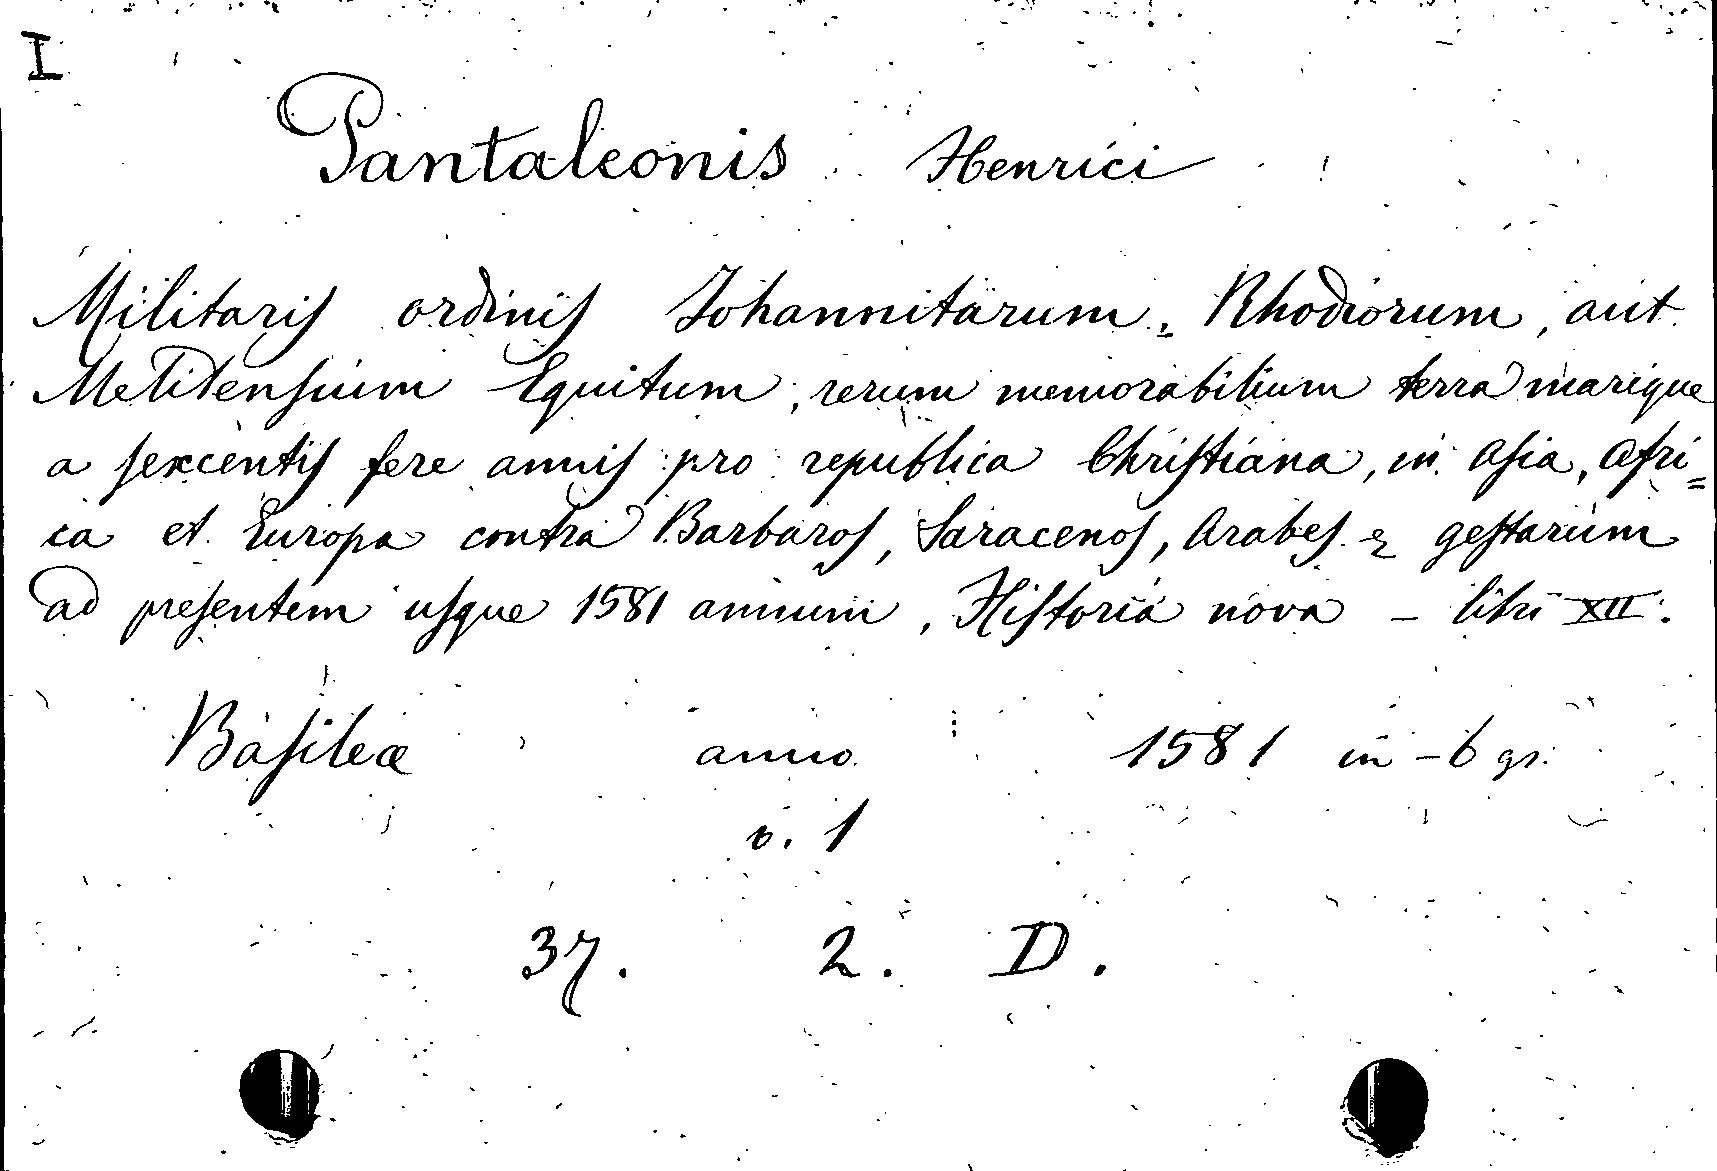 I
Pantaleonis Henrici
Militaris ordinis Johannitarum, Rhodiorum, aut
Melitensium Equitum, rerum memorabilium terra marique
a sexcentis fere annis pro republica Christiana, in Asia, Afri=
ca et Europa contra Barbaros, Saracenos, Arabes & gestarum
ad presentem usque 1581 annum, Historia nova – libri XII.
Basileæ anno 1581 in-6 gr.
v. 1
37. 2. D.